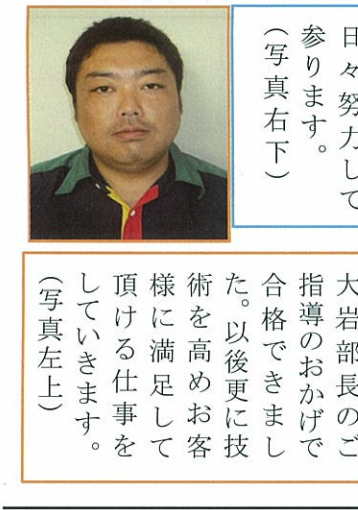 日々努力して
参ります。
（写真右下）
大岩部長のご
指導のおかげで
合格できまし
た。以後更に技
術を高めお客
様に満足して
頂ける仕事を
していきます。
（写真左上）